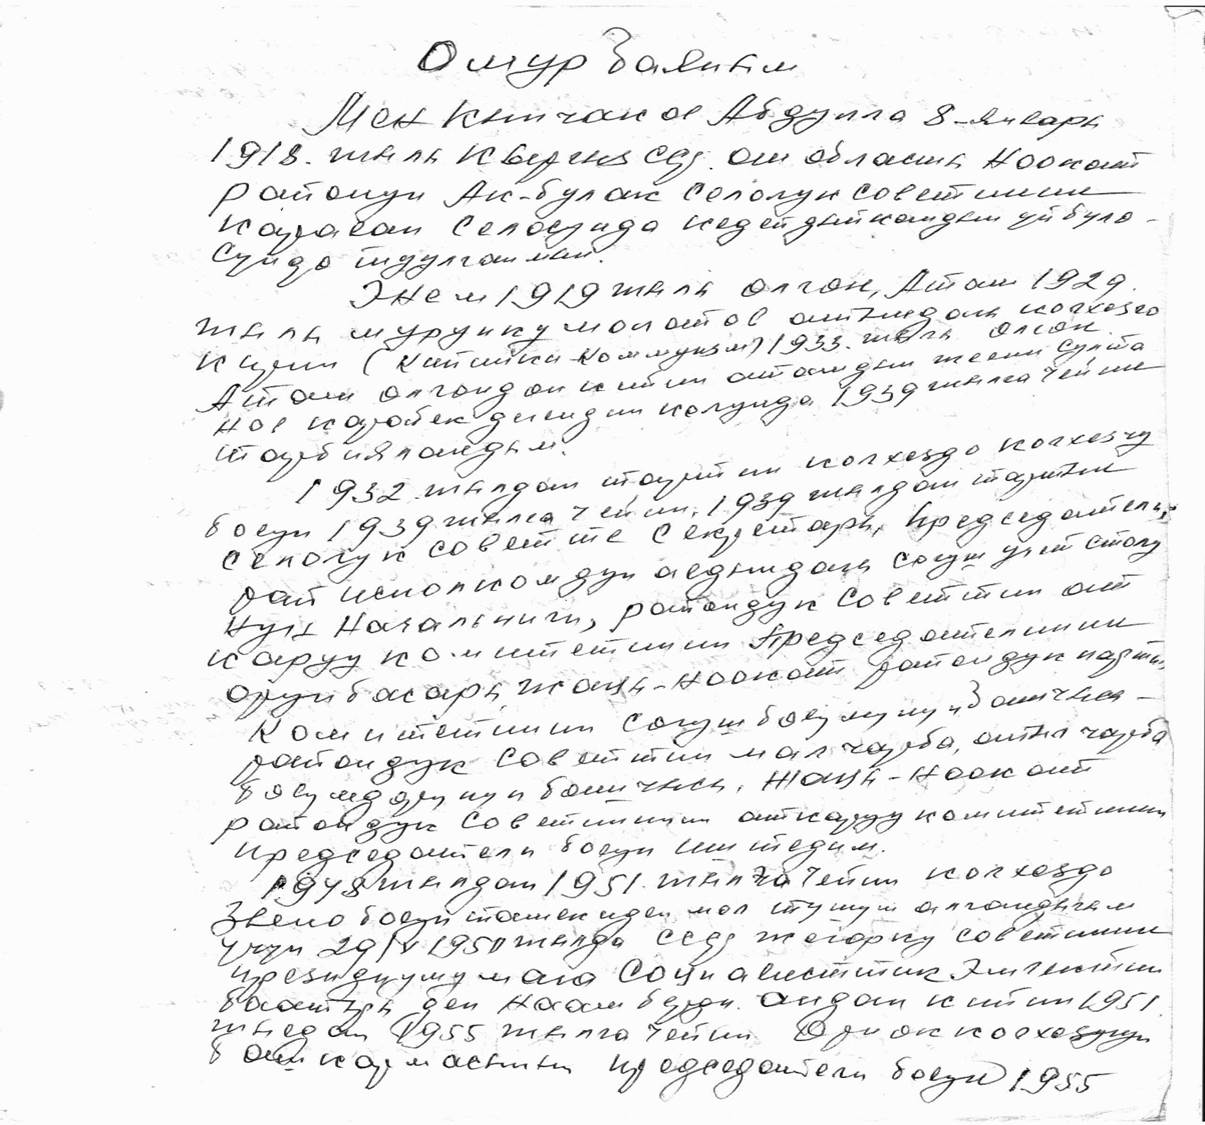 Омур Баяным
Мен Кыпчаков Абдулла 8-январь
1918. жылы Кыргыз ССР. ош областы Ноокат
районун Ак-булак селолук советинин
Караван селосунда кедей дыйкандын уй було-
сундо туулганмын.
Энем 1919 жылы олгон, Атам 1929.
жылы мурунку молотов атындагы колхозго
кирип ( Коммунизм) 1933. жылы олгон.
Атам олгондон кийин атамдын жеени Султа
нов колунда 1939 жылга чейин
тарбияландым.
1932. жылдан тартып колхоздо колхозчу
болуп 1939 жылга чейин, 1939 жылдан тартып
селолук советте секретарь, председатель,
рай исполкомдун алдындагы согуш учет столу
нун Начальниги, райондук советтин ат
каруу комитетинин председателинин
орун басары, Жаңы-Ноокат райондук партия
комитетинин согуш болумунун Башчысы
райондук советтин мал чарба, айыл чарба
болумдорунун башчысы, Жаңы-Ноокат
райондук советинин аткаруу комитетинин
председатели болуп иштедим.
1948 жылдан 1951. жылга чейин колхоздо
Звено болуп тамекиден мол тушум алгандыгым
учун 29/V 1950 жылда СССР жогорку советинин
президиуму мага Социалисттик Эмгектин
баатыры деп Наам берди. андан кийин 1951.
жылдан 1955 жылга чейин колхозунун
башкармасынын председатели болуп 1955